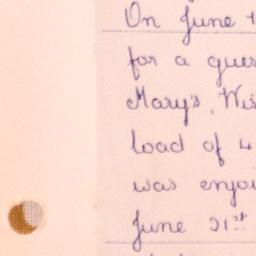 On June
for a
Mary's, Wis
load of 4
was enjoy
June 21st